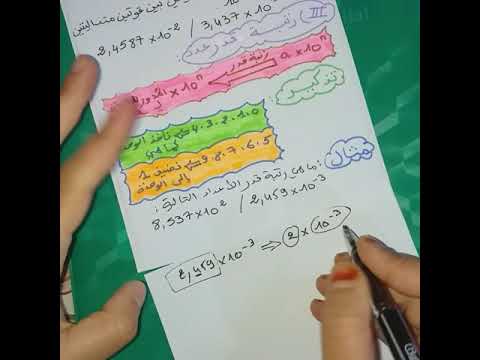 بين قوتين متتاليتين
2,4587 × 10⁻² / 3,437 × 10
III رتبة قدر عدد
a × 10ⁿ رتبة قدر × 10ⁿ
تذكير:
0 . 1 . 2 . 3 . 4 نأخذ الوحدة
كما هي
5 . 6 . 7 . 8 . 9 نضيف 1
إلى الوحدة
مثال: ما هي رتبة قدر الأعداد التالية:
8,537 × 10² / 2,459 × 10⁻³
2,459 × 10⁻³ ⇒ 2 × 10⁻³